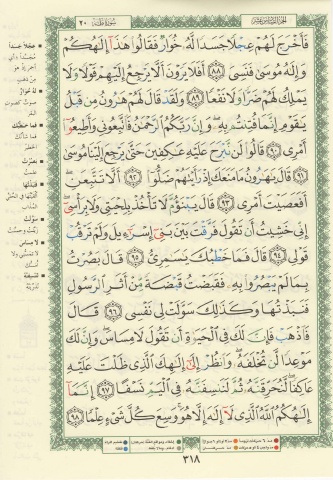 الجزء السادس عشر
سورة طه ٢٠
فَأَخْرَجَ لَهُمْ عِجْلًا جَسَدًا لَّهُۥ خُوَارٌ فَقَالُوا۟ هَٰذَآ إِلَٰهُكُمْ
وَإِلَٰهُ مُوسَىٰ فَنَسِىَ ٨٨ أَفَلَا يَرَوْنَ أَلَّا يَرْجِعُ إِلَيْهِمْ قَوْلًا وَلَا
يَمْلِكُ لَهُمْ ضَرًّا وَلَا نَفْعًا ٨٩ وَلَقَدْ قَالَ لَهُمْ هَٰرُونُ مِن قَبْلُ
يَٰقَوْمِ إِنَّمَا فُتِنتُم بِهِۦ وَإِنَّ رَبَّكُمُ ٱلرَّحْمَٰنُ فَٱتَّبِعُونِى وَأَطِيعُوٓا۟
أَمْرِى ٩٠ قَالُوا۟ لَن نَّبْرَحَ عَلَيْهِ عَٰكِفِينَ حَتَّىٰ يَرْجِعَ إِلَيْنَا مُوسَىٰ
٩١ قَالَ يَٰهَٰرُونُ مَا مَنَعَكَ إِذْ رَأَيْتَهُمْ ضَلُّوٓا۟ ٩٢ أَلَّا تَتَّبِعَنِ
أَفَعَصَيْتَ أَمْرِى ٩٣ قَالَ يَبْنَؤُمَّ لَا تَأْخُذْ بِلِحْيَتِى وَلَا بِرَأْسِىٓ
إِنِّى خَشِيتُ أَن تَقُولَ فَرَّقْتَ بَيْنَ بَنِىٓ إِسْرَٰٓءِيلَ وَلَمْ تَرْقُبْ
قَوْلِى ٩٤ قَالَ فَمَا خَطْبُكَ يَٰسَٰمِرِىُّ ٩٥ قَالَ بَصُرْتُ
بِمَا لَمْ يَبْصُرُوا۟ بِهِۦ فَقَبَضْتُ قَبْضَةً مِّنْ أَثَرِ ٱلرَّسُولِ
فَنَبَذْتُهَا وَكَذَٰلِكَ سَوَّلَتْ لِى نَفْسِى ٩٦ قَالَ
فَٱذْهَبْ فَإِنَّ لَكَ فِى ٱلْحَيَوٰةِ أَن تَقُولَ لَا مِسَاسَ وَإِنَّ لَكَ
مَوْعِدًا لَّن تُخْلَفَهُۥ وَٱنظُرْ إِلَىٰٓ إِلَٰهِكَ ٱلَّذِى ظَلْتَ عَلَيْهِ
عَاكِفًا لَّنُحَرِّقَنَّهُۥ ثُمَّ لَنَنسِفَنَّهُۥ فِى ٱلْيَمِّ نَسْفًا ٩٧ إِنَّمَآ
إِلَٰهُكُمُ ٱللَّهُ ٱلَّذِى لَآ إِلَٰهَ إِلَّا هُوَ وَسِعَ كُلَّ شَىْءٍ عِلْمًا ٩٨
عجلا جسدا
له خوار
فما خطبك
بصرت
فنبذتها
سولت
لا مساس
لننسفنه
٣١٨